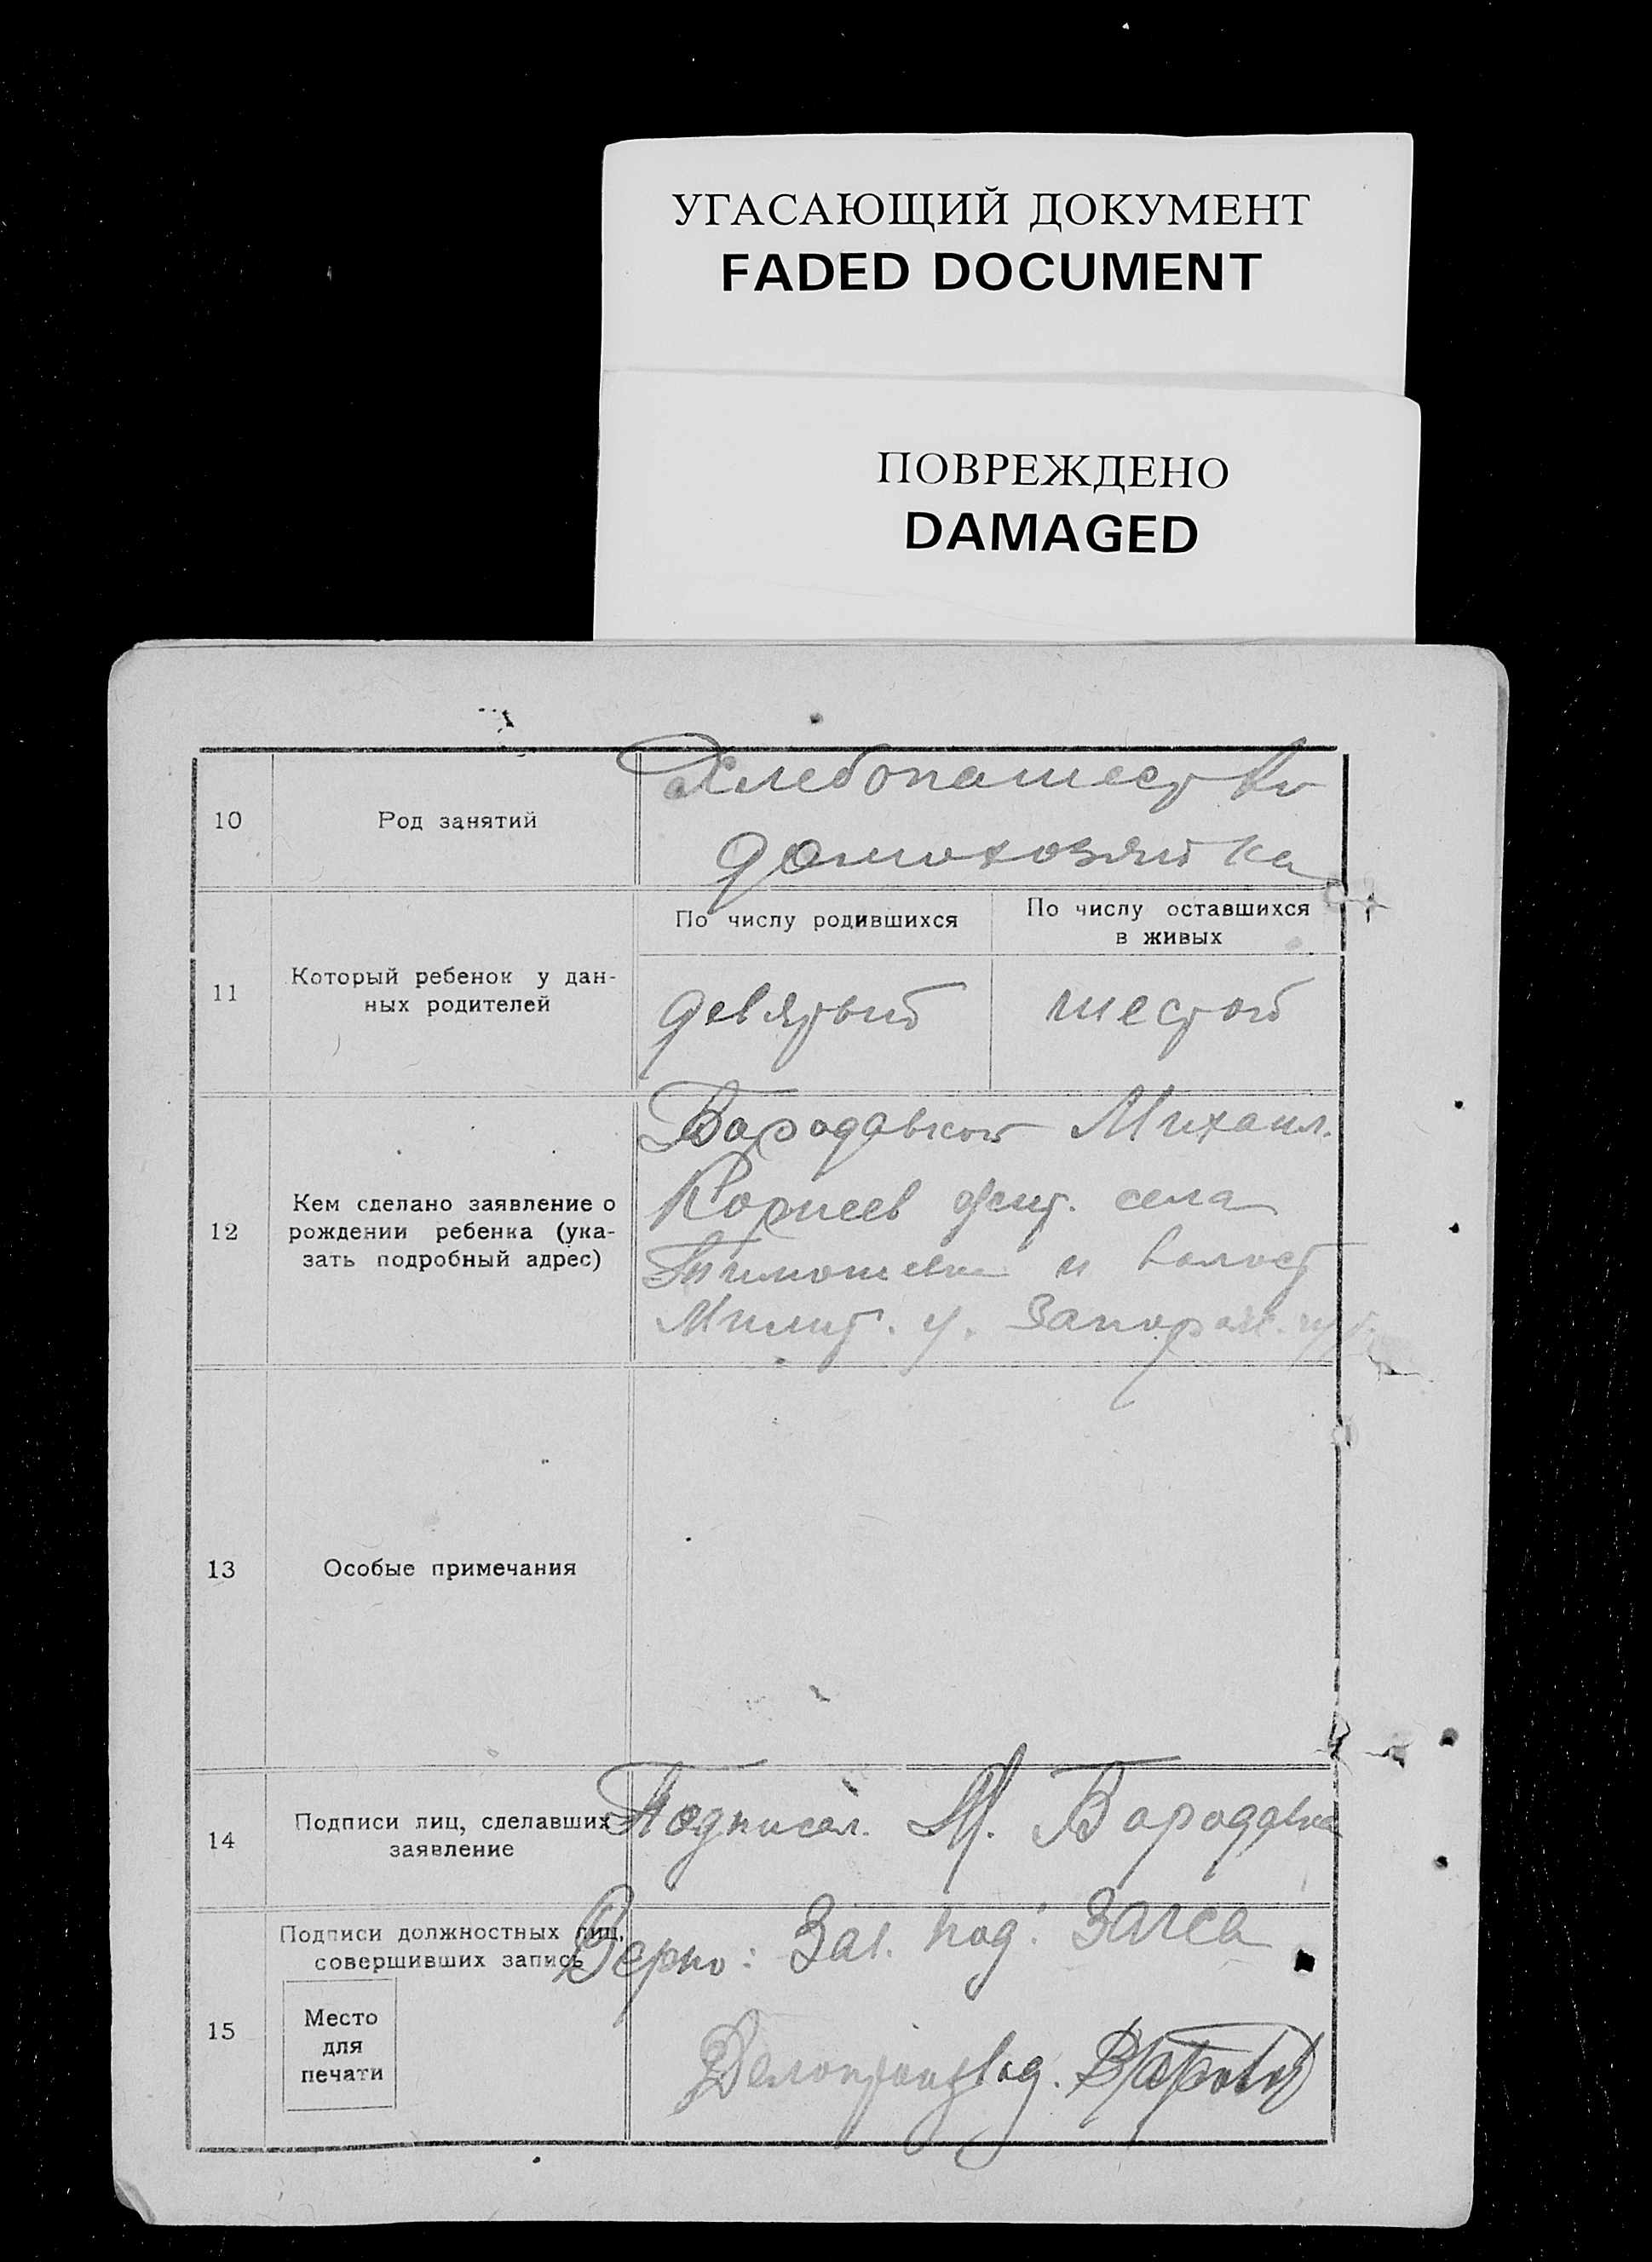 УГАСАЮЩИЙ ДОКУМЕНТ
FADED DOCUMENT
ПОВРЕЖДЕНО
DAMAGED
10
Род занятий
Хлебопашество
домохозяйка
11
Который ребенок у дан-
ных родителей
По числу родившихся
По числу оставшихся
в живых
девятый
шестой
12
Кем сделано заявление о
рождении ребенка (ука-
зать подробный адрес)
Михаил.
Корнеев жит. села
и волост
Мелит. у. Запорож. губ.
13
Особые примечания
14
Подписи лиц, сделавших
заявление
Подписал. М. Бородавка
15
Подписи должностных лиц,
совершивших запись
Место
для
печати
Верно: Зав. под. Загса
Делопроизвод.